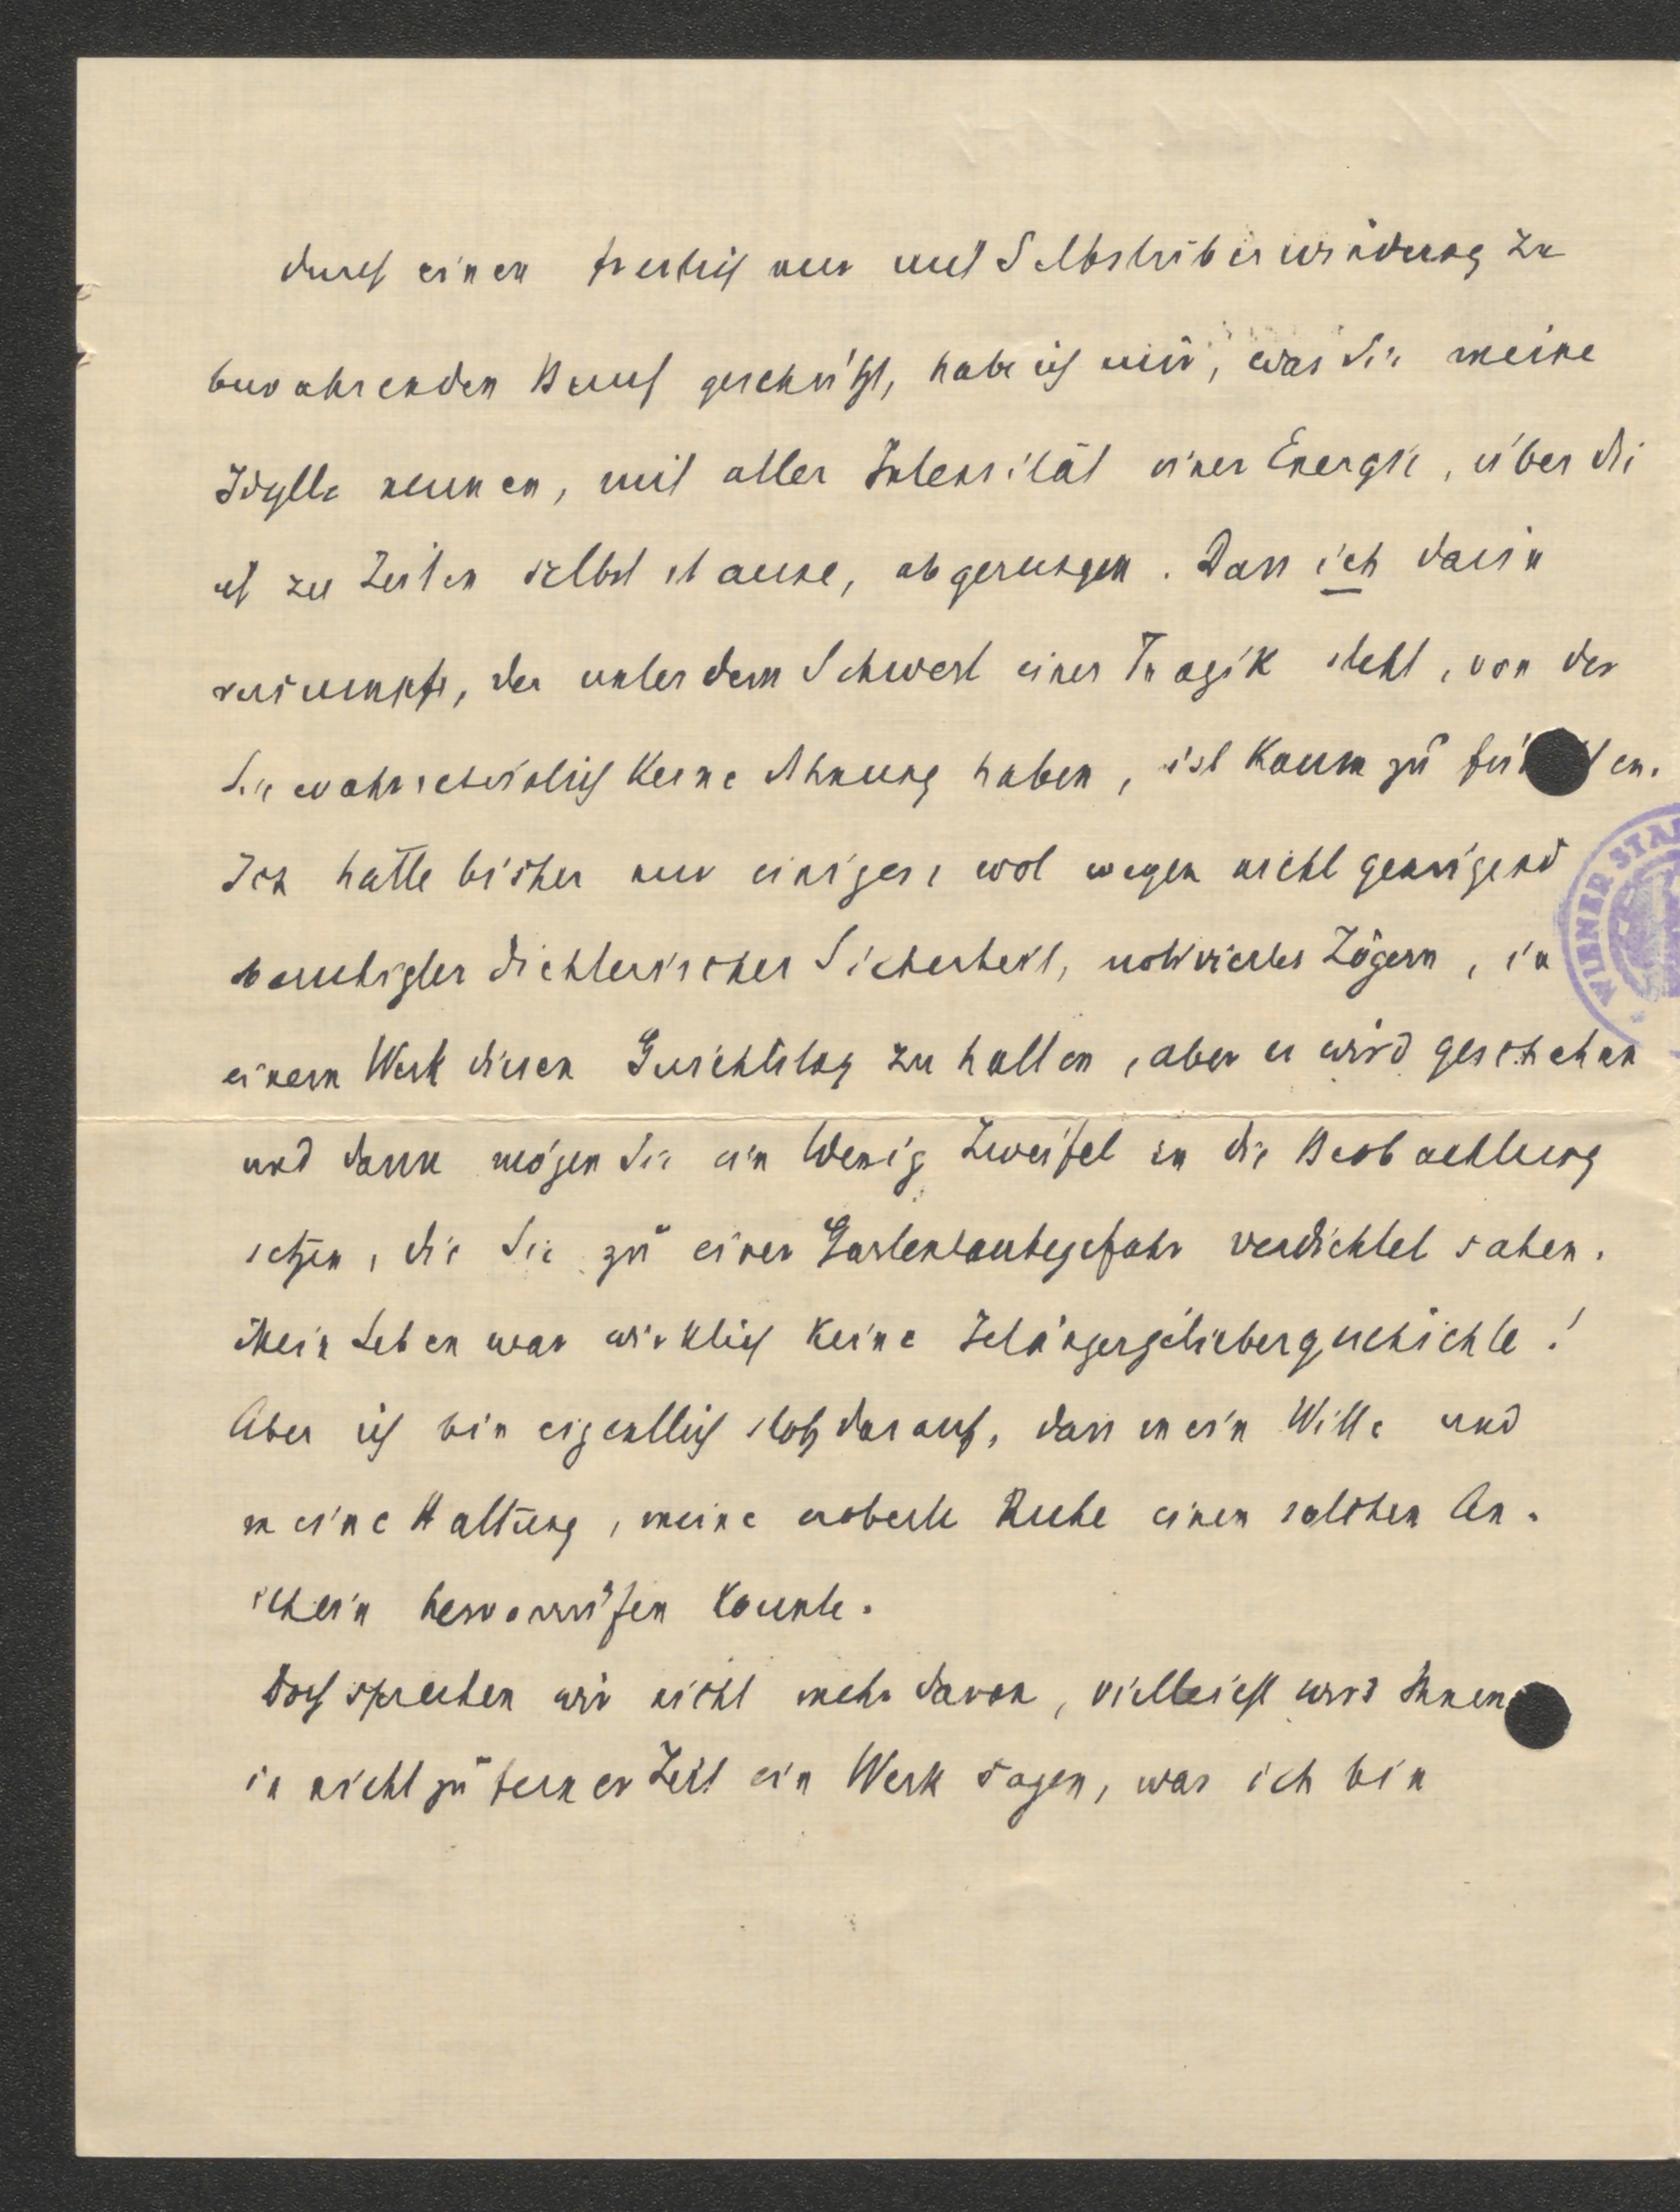 durch einen freilich nur mit Selbstüberwindung zu
bewahrenden Beruf geschützt, habe ich mir, was Sie meine
Idylle nennen, mit aller Intensität einer Energie, über die
ich zu Zeiten selbst staune, abgerungen. Dass ich darin
versumpfe, der unter dem Schwert einer Tragik steht, von der
Sie wahrscheinlich keine Ahnung haben, ist kaum zu
Ich hatte bisher nur einiges, wol wegen nicht genügend
beruhigter dichterischer Sicherheit, motiviertes Zögern, in
einem Werk diesen Gerichtstag zu halten, aber es wird geschehen
und dann mögen Sie ein Wenig Zweifel in die Beobachtung
setzen, die Sie zu einer Gartenlaubegefahr verdichtet sahen.
Mein Leben war wirklich keine Jelängerjelieber geschichte!
Aber ich bin eigentlich stolz darauf, dass mein Wille und
meine Haltung, meine eroberte Ruhe einen solchen An-
schein hervorrufen konnte.
Doch sprechen wir nicht mehr davon, vielleicht wird Ihnen
in nicht zu ferner Zeit ein Werk sagen, was ich bin
WIENER STA